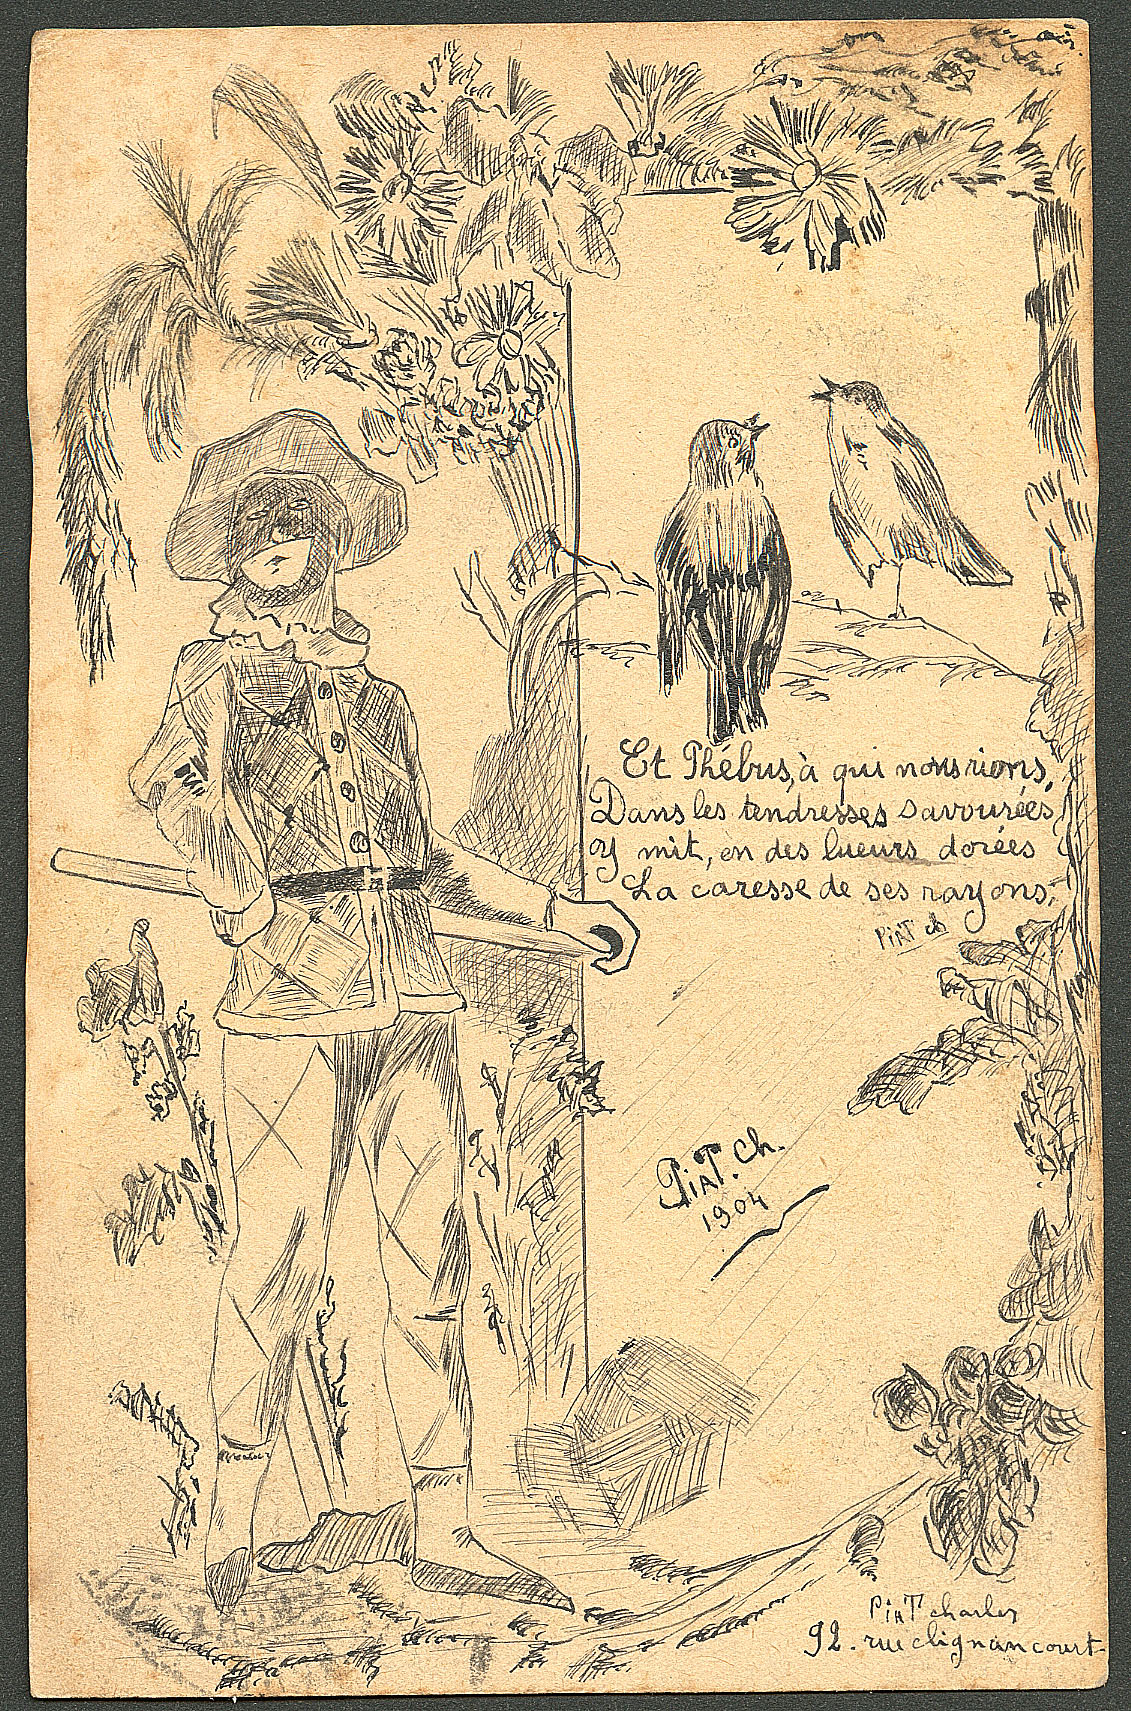 Et Phébus, à qui nous rions,
Dans les tendresses savourées,
Y mit, en des lueurs dorées
La caresse de ses rayons;
PIAT ch
PIAT. Ch.
1904
PIAT charles
92. rue clignancourt